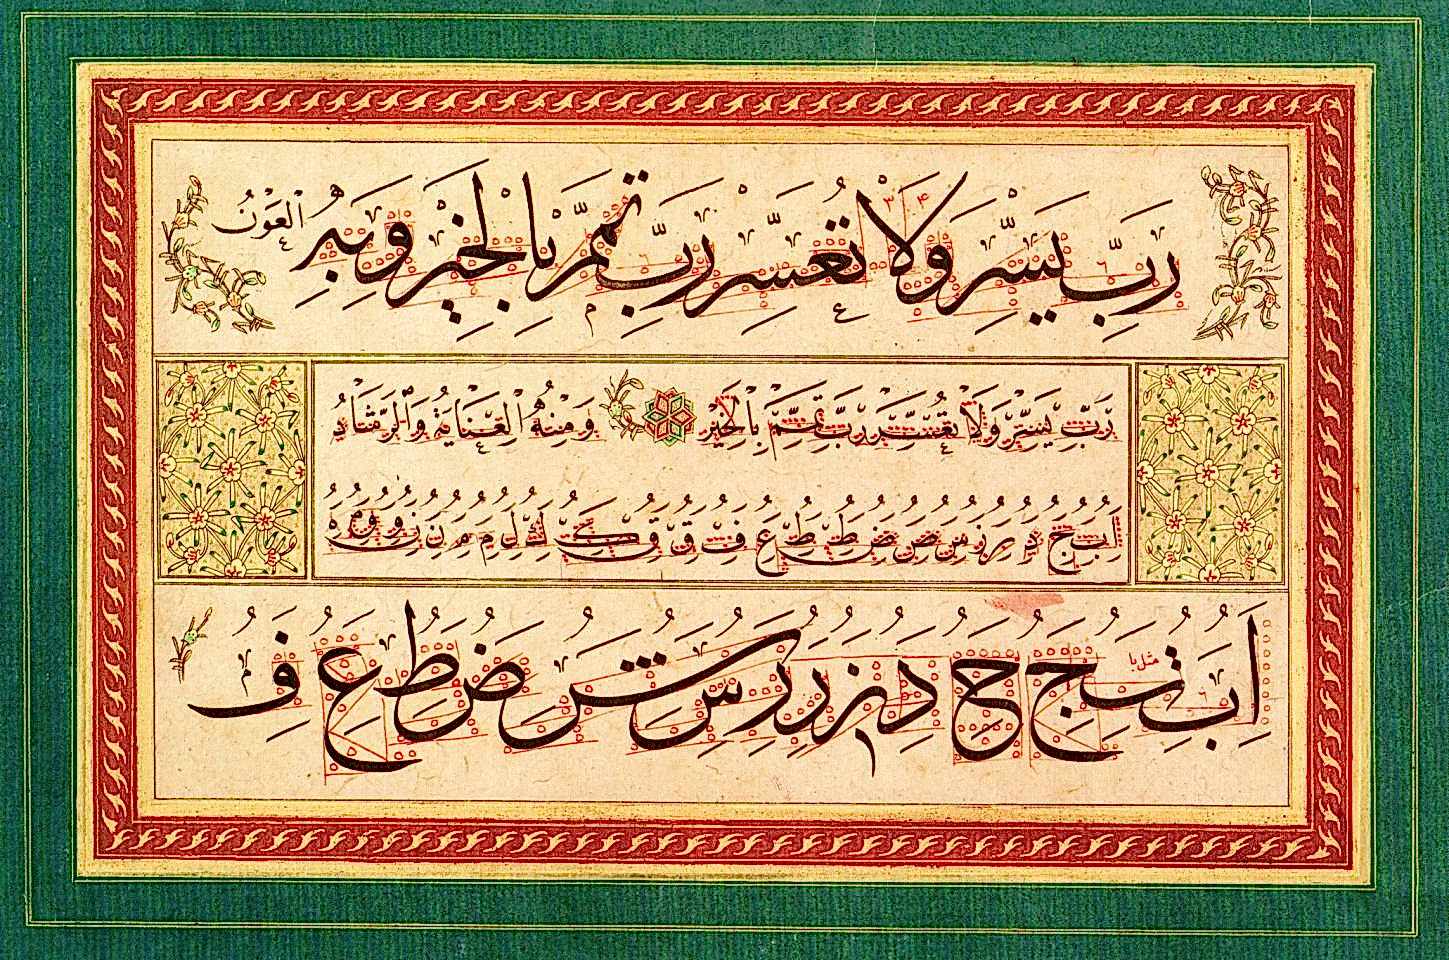 رَبِّ يَسِّرْ وَلَا تُعَسِّرْ رَبِّ تَمِّمْ بِالْخَيْرِ وَبِهِ الْعَوْنُ
رَبِّ يَسِّرْ وَلَا تُعَسِّرْ رَبِّ تَمِّمْ بِالْخَيْرِ وَمِنْهُ الْعِنَايَةُ
ا ب ج د ر ز س ص ض ط ط ع ف ق ق ك ل م م ن
ا ب ت ج ح د ز ر ر س ش ض ط ع ف